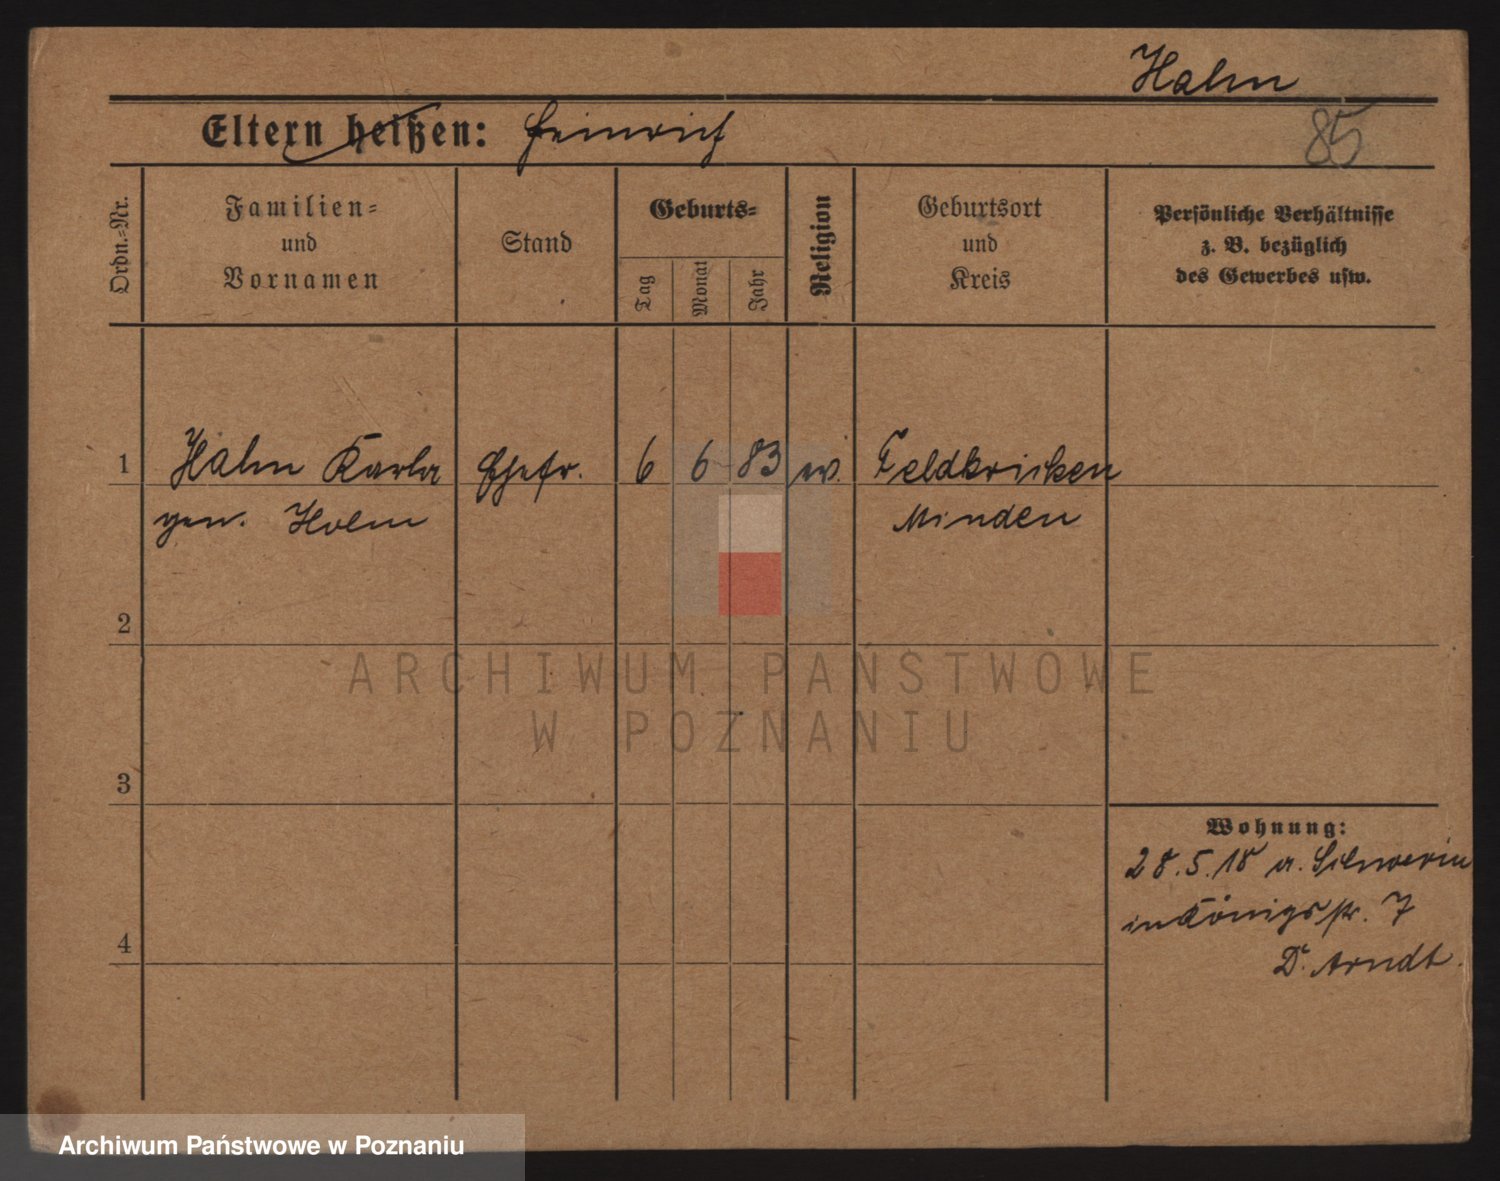 Hahn
85
Eltern heißen: Heinrich
Ordn.-Nr.
Familien- und Vornamen
Stand
Geburts-
Tag
Monat
Jahr
Religion
Geburtsort und Kreis
Persönliche Verhältnisse
z. B. bezüglich
des Gewerbes usw.
1 Hahn Karla Ehefr. 6 6 83 Feldkricken
gen. Holm Minden
2
ARCHIWUM PAŃSTWOWE
W POZNANIU
3
Wohnung:
28.5.18 a. Schwerin
in Königstr. 7
4
Dr. Arndt.
Archiwum Państwowe w Poznaniu